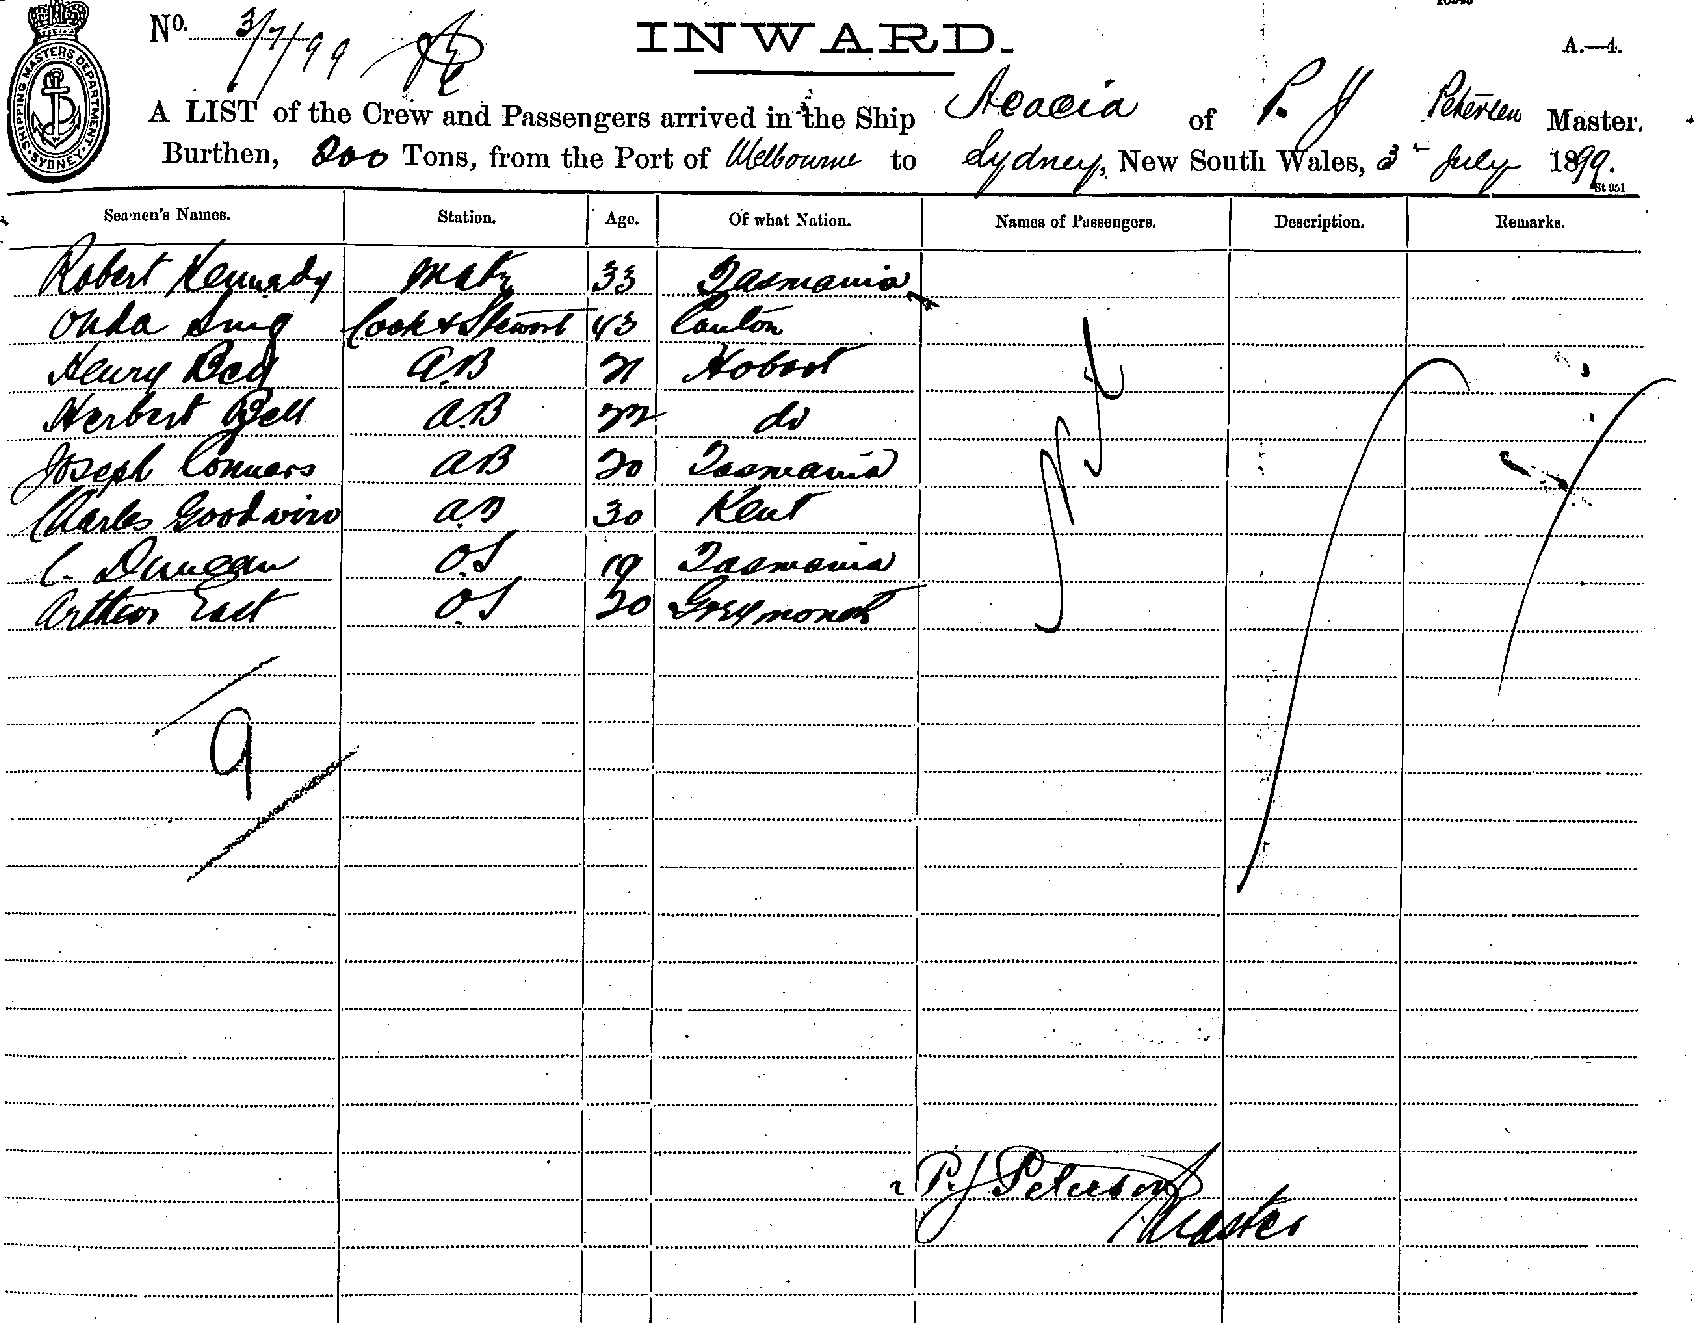 No. 3/7/99
INWARD.
A.—4.
SHIPPING MASTERS DEPARTMENT. SYDNEY.
A LIST of the Crew and Passengers arrived in the Ship Acacia of P. J Petersen Master.
Burthen, 200 Tons, from the Port of Melbourne to Sydney, New South Wales, 3 July 1899.
Seamen's Names. Station. Age. Of what Nation. Names of Passengers. Description. Remarks.
Robert Kennedy Mate 33 Tasmania
Sing Cook & Steward 43 Canton
Henry A.B 21 Hobart
Herbert Bell A.B 22 do
Joseph Connors A B 20 Tasmania
Charles Goodwin a.B 30 Kent
C. Duncan O.S 19 Tasmania
Arthur East O.S 20 Greymouth
9
P. J Peterson
Master